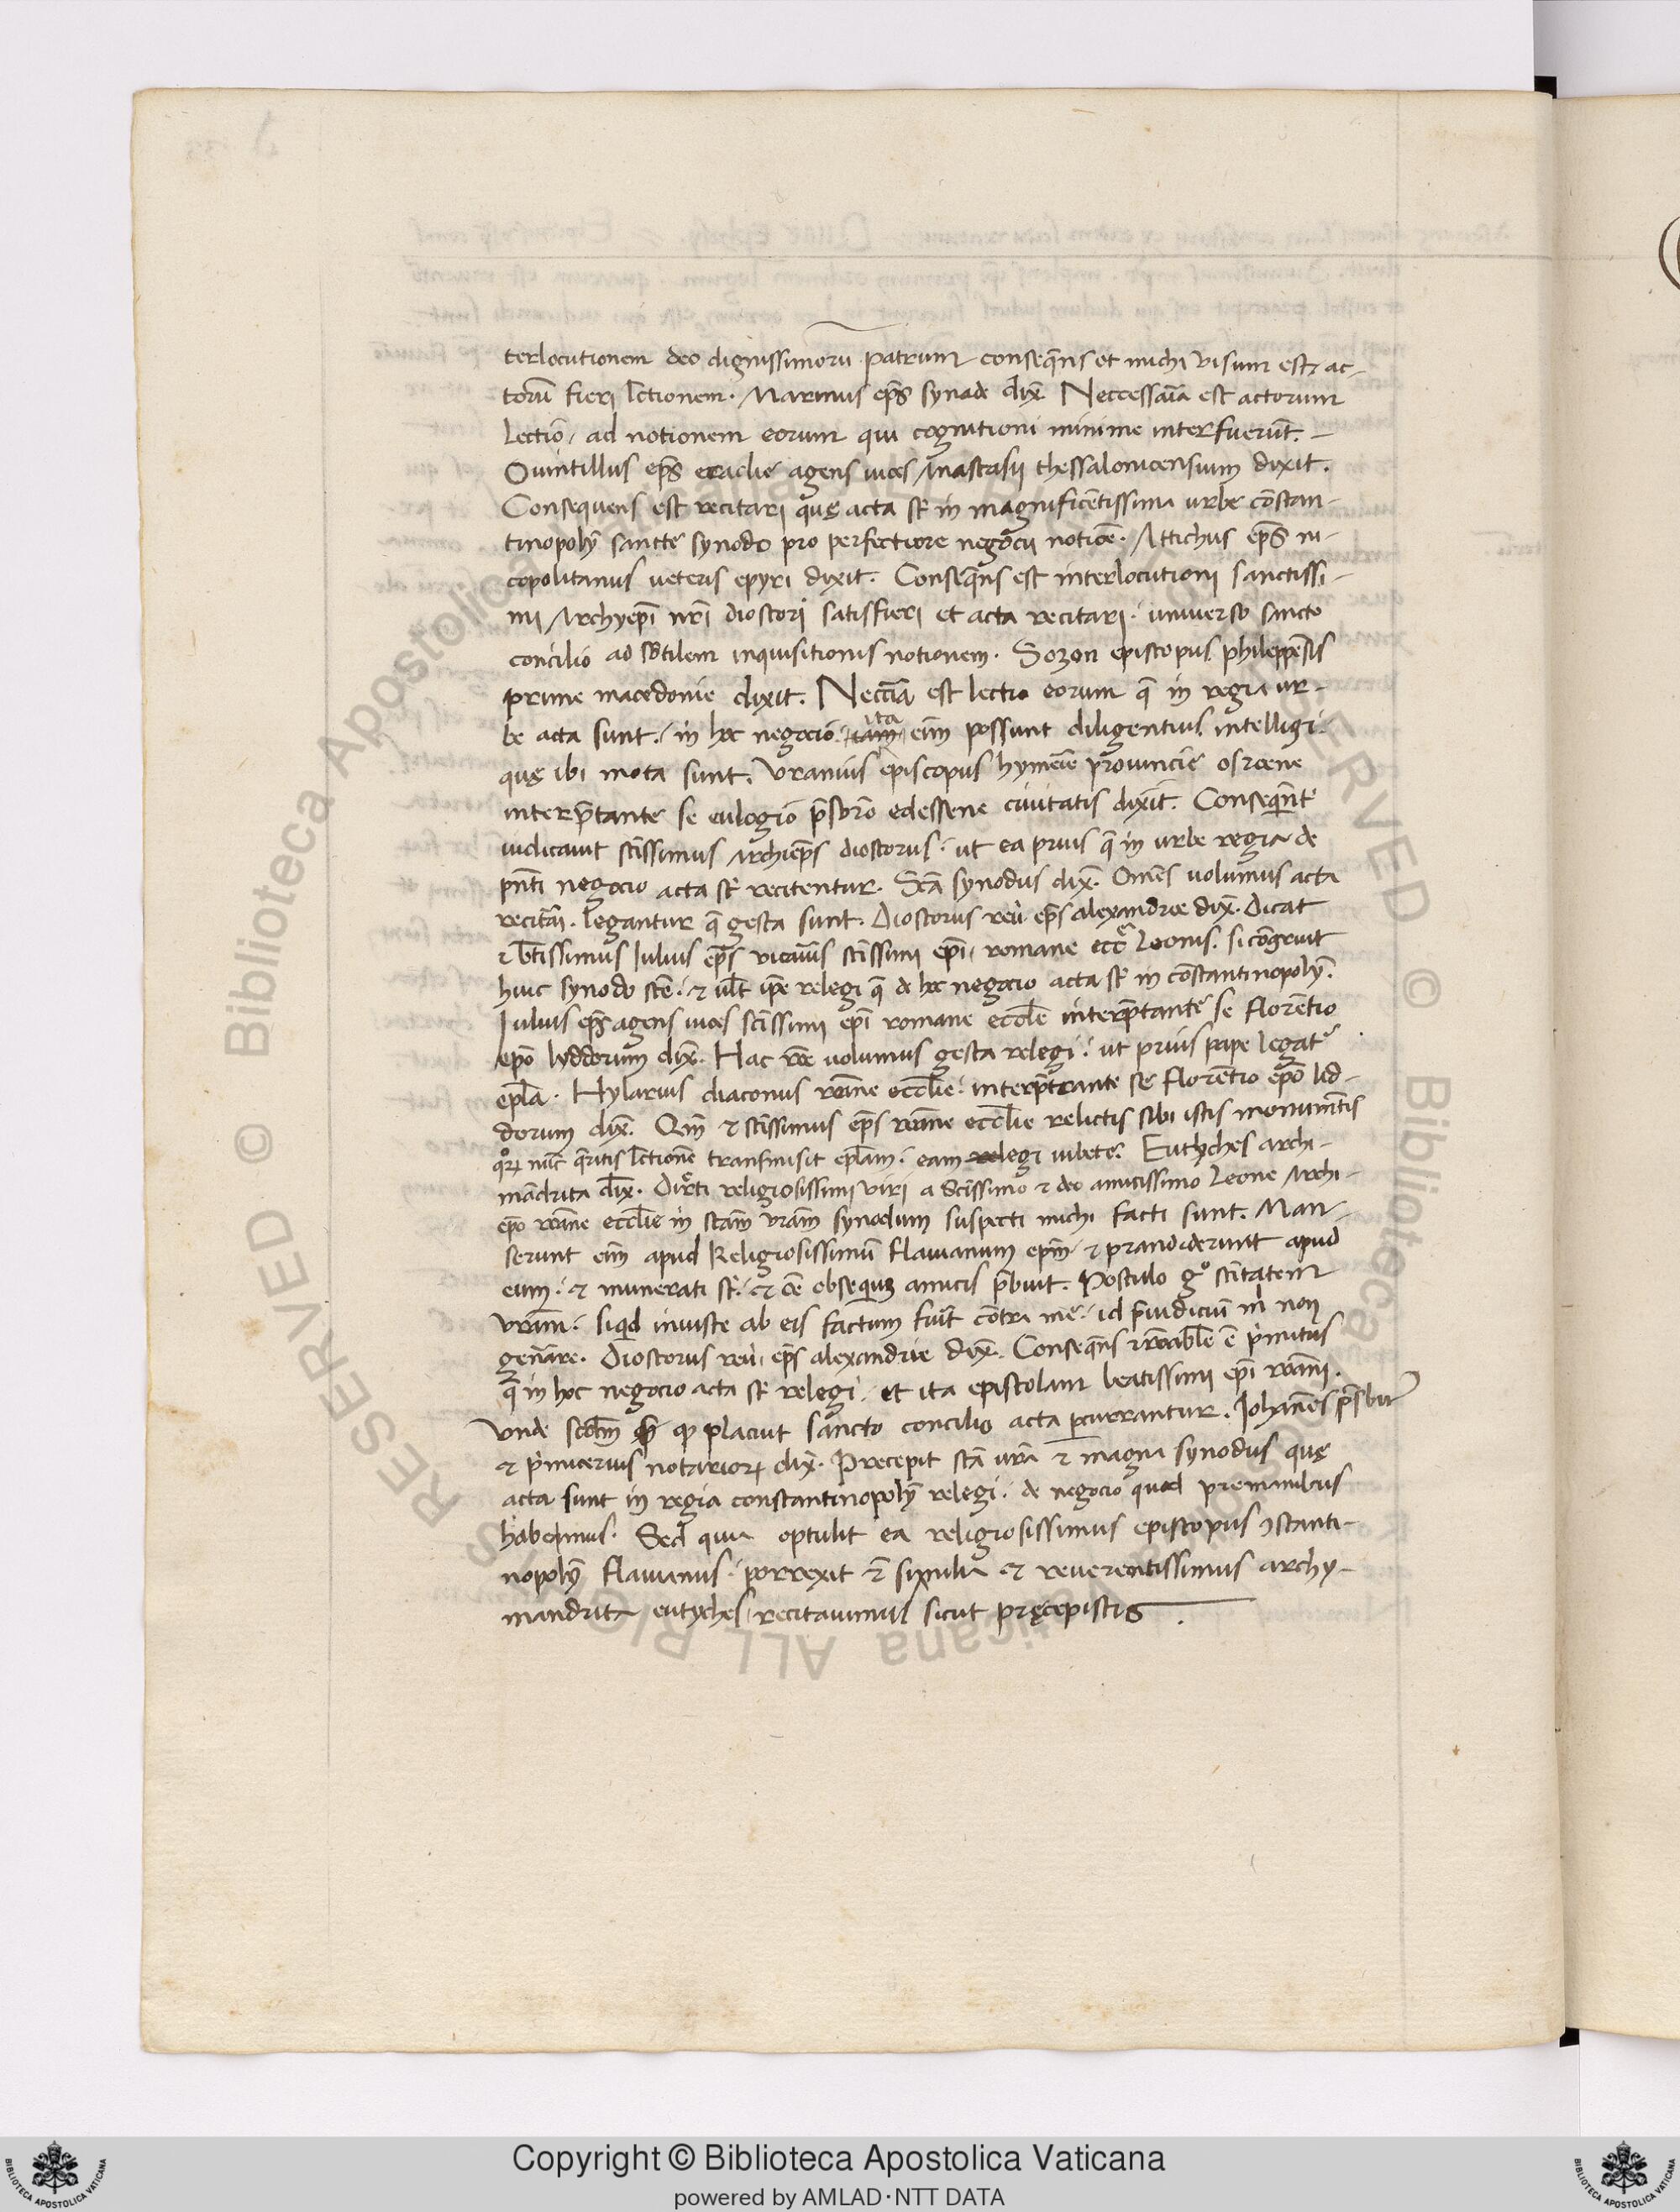 terlocutionem deo dignissimoru patrum conseqēns et michi visum est ac-
torū fieri lc̄tionem. Marinus ep̄s synade dix̄. Neccessaīa est actorum
lectio, ad notionem eorum qui cognitioni minime interfuerūt.-
Quintillus ep̄s eraclie agens uices Anastasii thessalonicensium dixit.
Consequens est recitari quę acta st̄ in magnificētissima urbe cōstan-
tinopolȳ sancte synodo pro perfectiore negocii noticē. Attichus ep̄s ni-
copolitanus ueteris epyri dixit. Conseqēns est interlocutioni sanctissi-
mi Archyep̄i nr̄i dioscori satisfieri et acta recitari. uniuerso sancto
concilio ad sb̄tilem inquisitionis notionem. Sozon episcopus philippēsis
prime macedonie dixit. Necc̄iā est lectio eorum q̄ in regia ur-
be acta sunt. in hoc negocio. iam ita eīm possunt diligentius intelligi
quę ibi mota sunt. Vranius episcopus hymerie prouincie osroene
interp̄tante se eulogio p̄sbr̄o edessene ciuitatis dixit. Conseqēnt̄
iudicauit sc̄issimus archiep̄s dioscorus. ut ea prius q̄ in urbe regia de
pn̄ti negocio acta st̄ recitentur. Sc̄ā synodus dix̄. Om̄es uolumus acta
recitāī. legantur q̄ gesta sunt. Dioscorus reū. ep̄s alexandrie dix̄. Dicat
& b̄tissimus Iulius ep̄s vicariūs sc̄issimi ep̄i romane eccē Leonis. si cōgruit
huic synodo sc̄e. & ul̄t ip̄e relegi q̄ de hoc negocio acta st̄ in cōstantinopolȳ.
Iulius ep̄s agens uices sc̄issimi ep̄i romane eccl̄e interp̄tante se florētio
ep̄o lyddorum dix̄. Hac rōe uolumus gesta relegi. ut prius pape legat᷑
epl̄a. Hylarius diaconus rōāne eccl̄ie. interp̄trante se florētio ep̄o lid-
dorum dix̄. Qm̄ & sc̄issimus ep̄s rōāne eccl̄ie relictis sibi istis monumētis
qorꝝ nūc q̄ritis lc̄tionē transmisit epl̄am. eam relegi iubete. Eutyches archi-
mādrita dix̄. Dirc̄ti religiosissimi viri a sc̄issimo & deo amicissimo Leone Archi-
ep̄o rōāne eccl̄ie in sc̄am vr̄am synodum suspecti michi facti sunt. Man-
serunt eīm apud Religiosissimū flauianum ep̄m & prandiderunt apud
eum. & munerati st̄. & oē obsequiuꝫ amicis p̄buit. Postulo gº sc̄itatem
vr̄am. siqd iniuste ab eis factum fuīt cōtra me. id p̄iudiciū m̄ non
gen̄are. Dioscorus reū. ep̄s alexandrie dix̄. Conseqēns & rōnabl̄e ē p̄mitus
q̄ in hoc negocio acta st̄ relegi. et ita epistolam beatissimi ep̄i rōāni.
Vnde scd̄m qꝫ placuit sancto concilio acta p̄currantur. Iohānes p̄sbiter
& p̄micerius notariorꝝ dix̄. Precepit sc̄ā ur̄ā & magna synodus quę
acta sunt in regia constantinopolȳ relegi. de negocio quod premanibus
habemus. Sed quia optulit ea religiosissimus episcopus ↄstanti-
nopolȳ flauianus. porrexit & similia & reuerentissimus archy-
mandrita eutyches, recitauimus sicut pręcepistis.
Copyright © Biblioteca Apostolica Vaticana
powered by AMLAD·NTT DATA